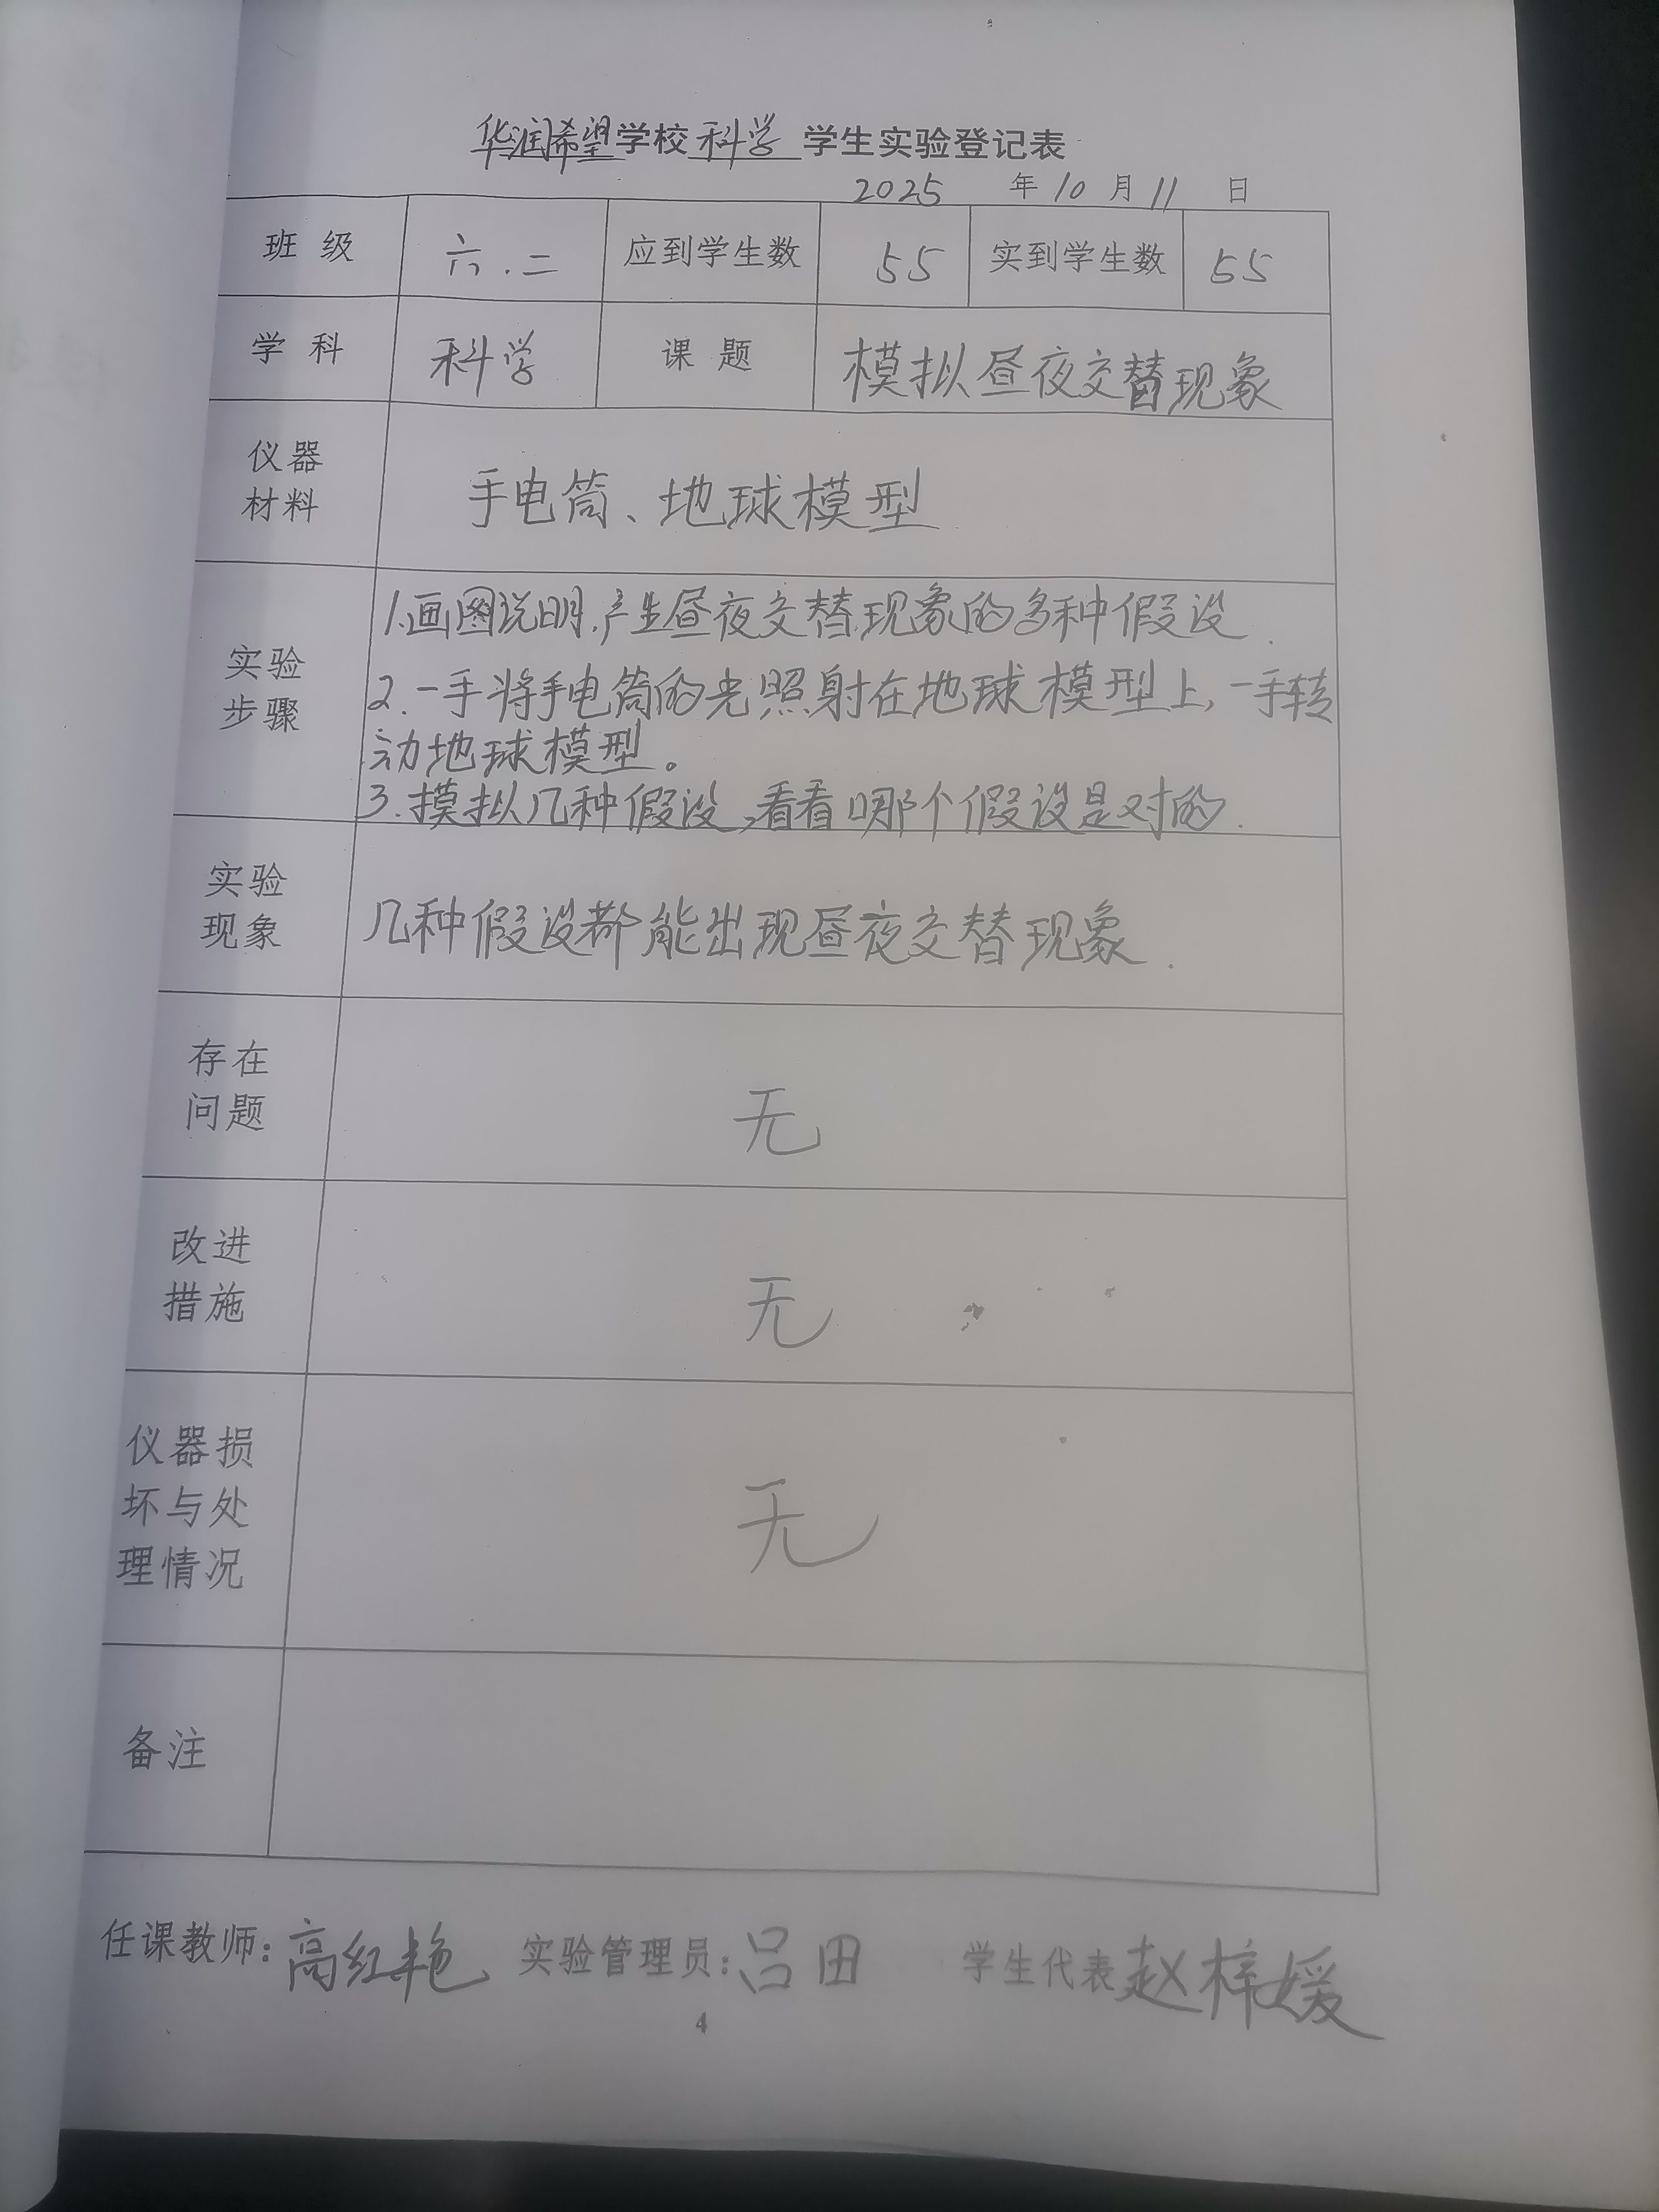 华润希望学校科学 学生实验登记表
2025 年 10 月 11 日
班 级 六.二 应到学生数 55 实到学生数 55
学 科 科学 课 题 模拟昼夜交替现象
仪器
材料
手电筒、地球模型
实验
步骤
1.画图说明,产生昼夜交替现象的多种假设.
2.一手将手电筒的光照射在地球模型上,一手转
动地球模型。
3.摸拟几种假设,看看哪个假设是对的.
实验
现象
几种假设都能出现昼夜交替现象.
存在
问题
无
改进
措施
无
仪器损
坏与处
理情况
无
备注
任课教师:高红艳 实验管理员:吕田 学生代表赵梓媛
4